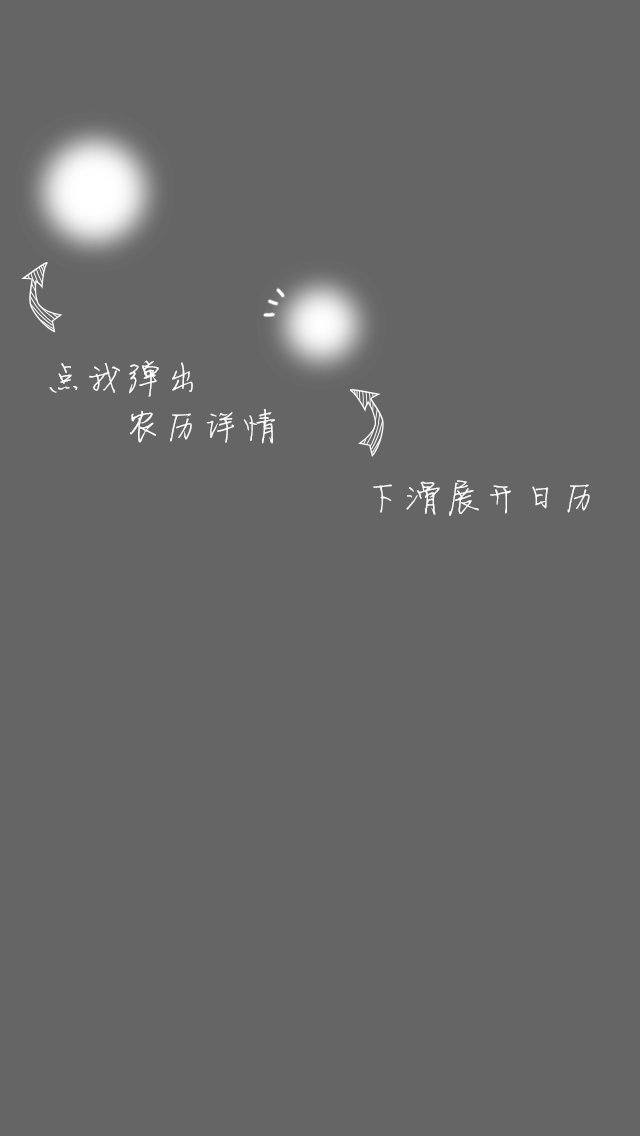 点我弹出
农历详情
下滑展开日历